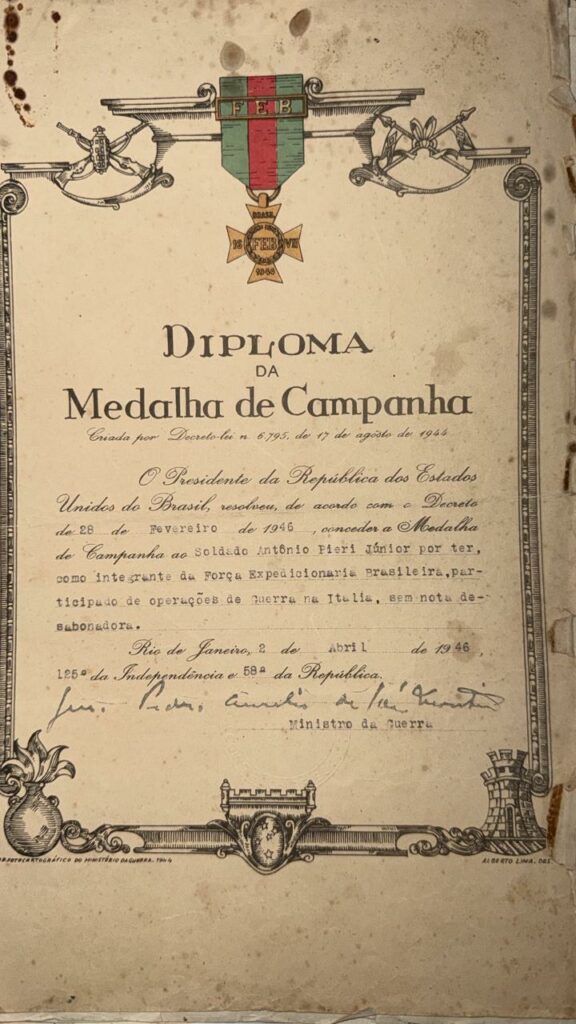 FEB
BRASIL
16 FEB VII
1944
DIPLOMA
DA
Medalha de Campanha
Criada por Decreto-lei n. 6.795, de 17 de agôsto de 1944
O Presidente da República dos Estados
Unidos do Brasil, resolveu, de acordo com o Decreto
de 28 de Fevereiro de 1946, conceder a Medalha
de Campanha ao Soldado Antônio Pieri Júnior por ter,
como integrante da Força Expedicionaria Brasileira, par-
ticipado de operações de Guerra na Italia, sem nota de-
sabonadora.
Rio de Janeiro, 2 de Abril de 1946,
125º da Independência e 58ª da República.
Ministro da Guerra
FOTOCARTOGRÁFICO DO MINISTÉRIO DA GUERRA. 1944
ALBERTO LIMA, DES